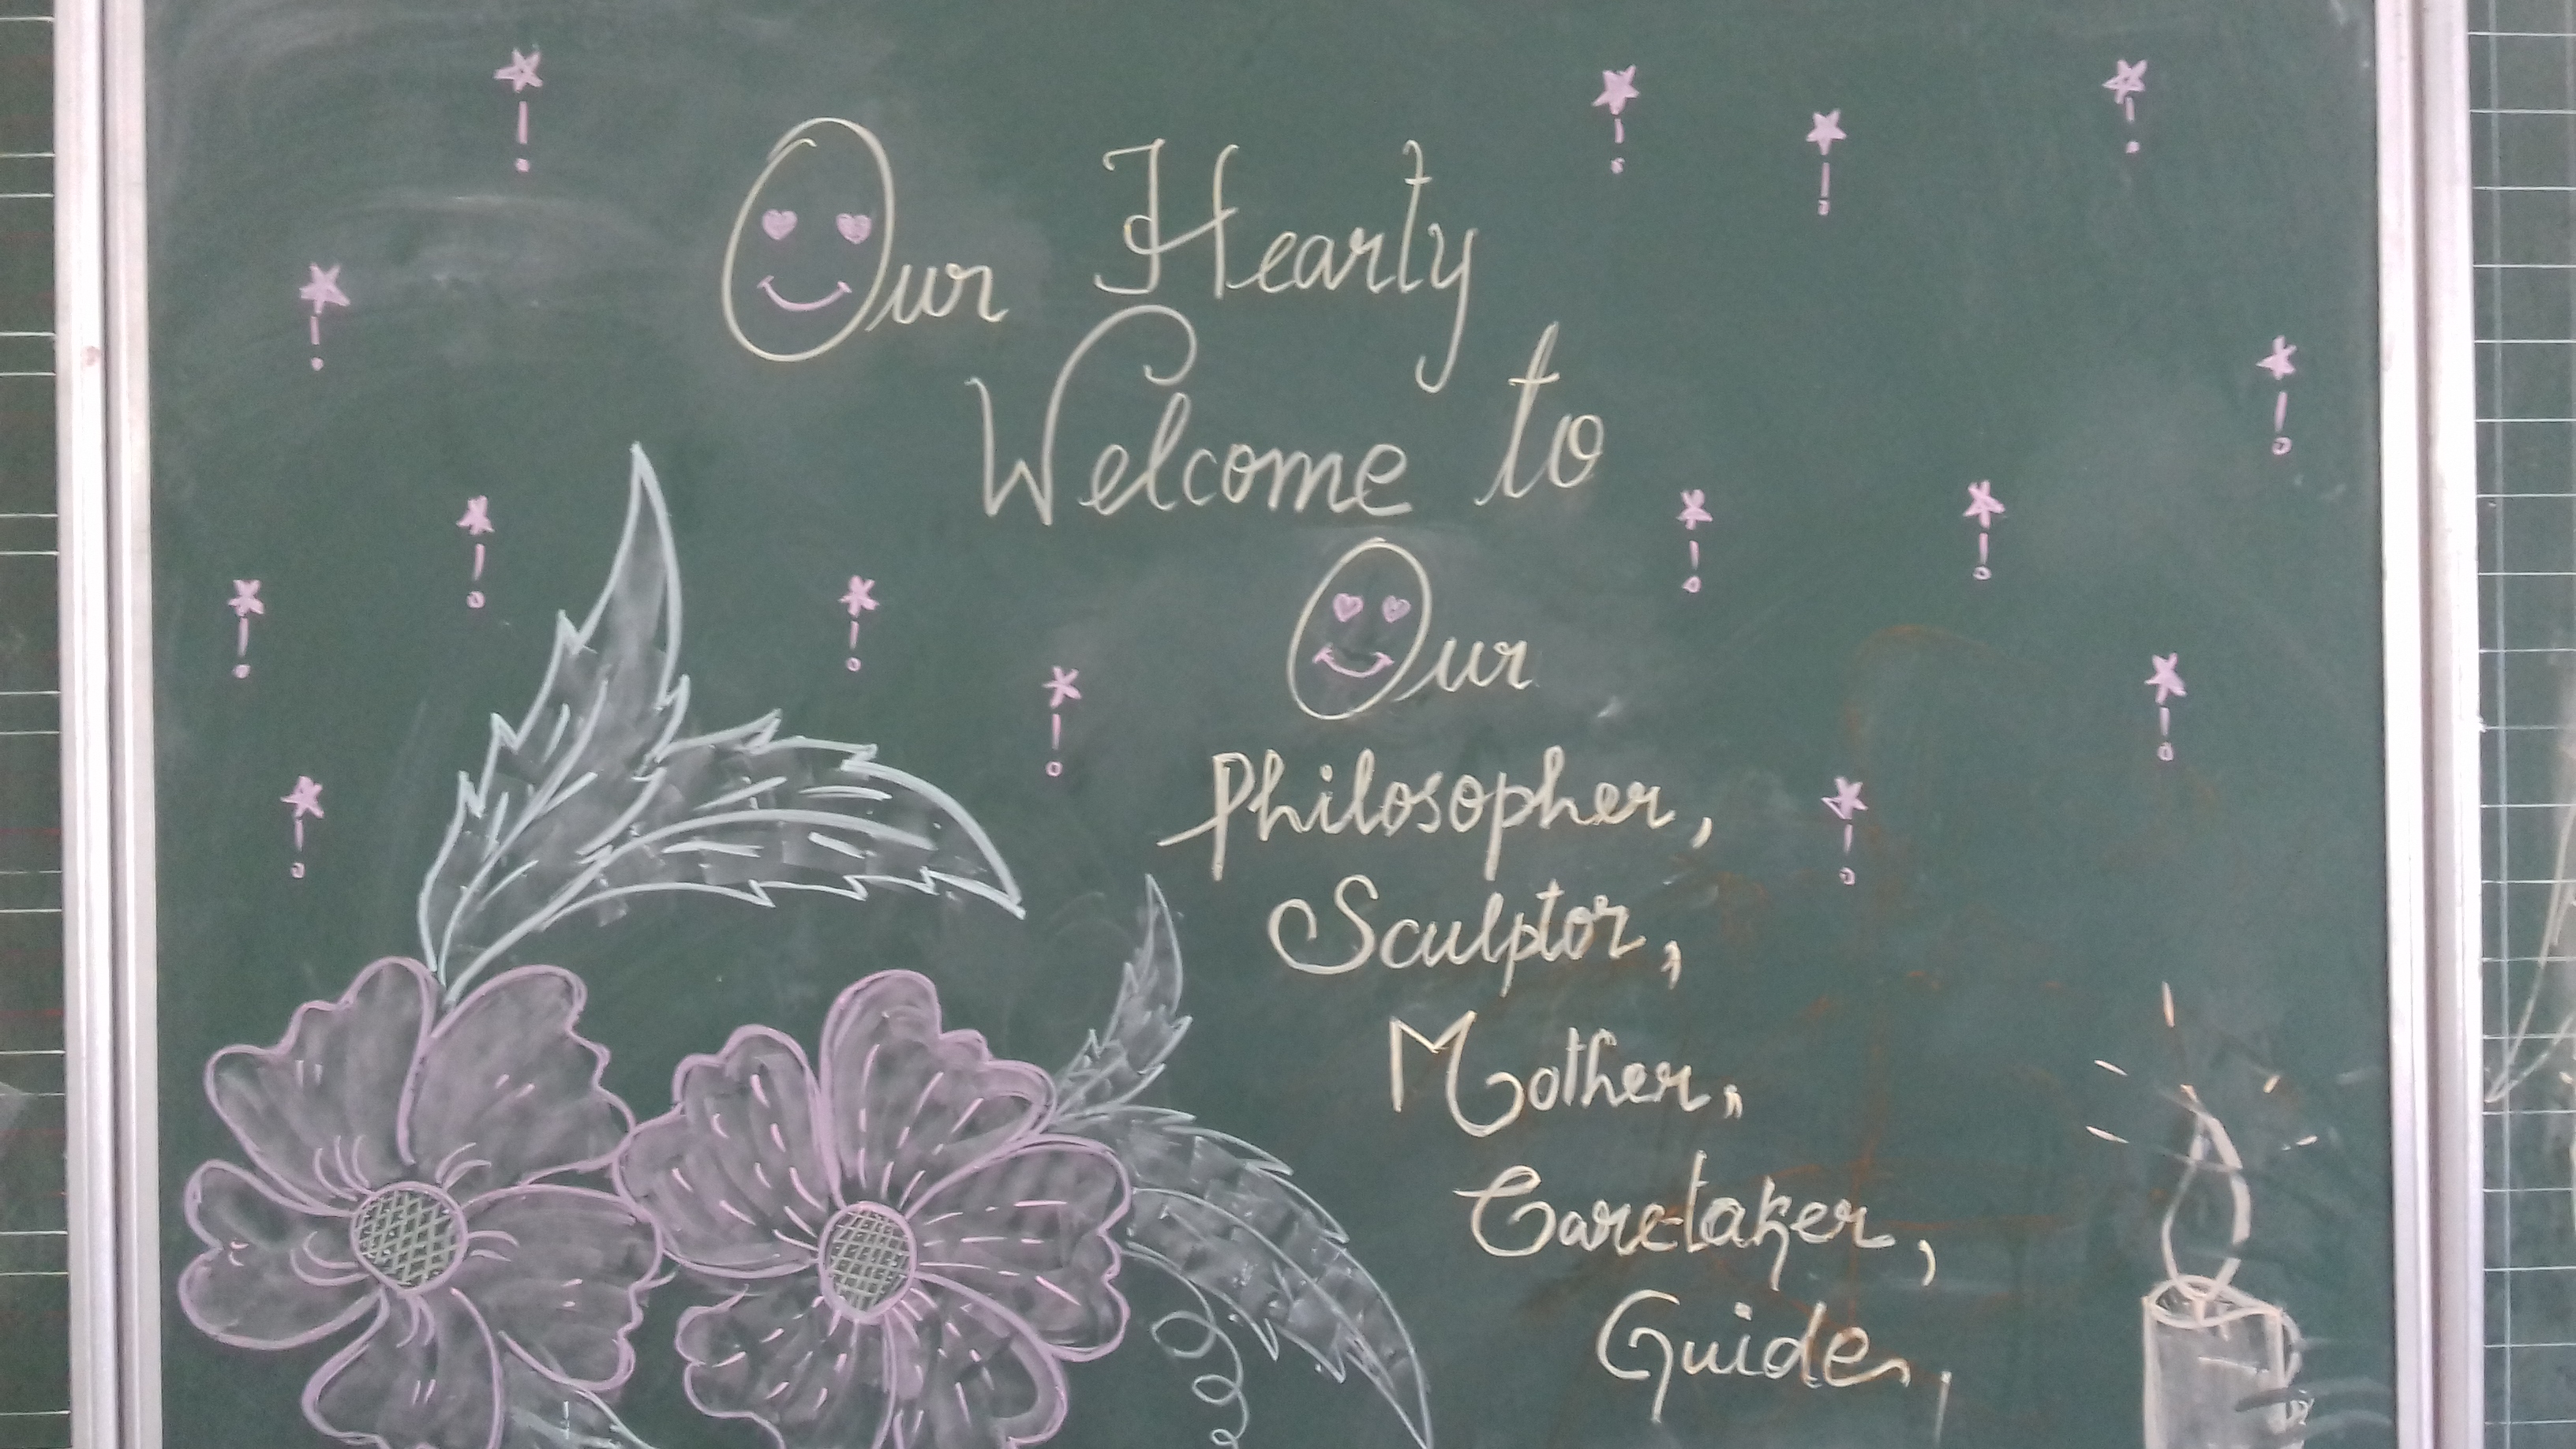 Our Hearty
Welcome to
Our
Philosopher,
Sculptor,
Mother,
Caretaker,
Guide,